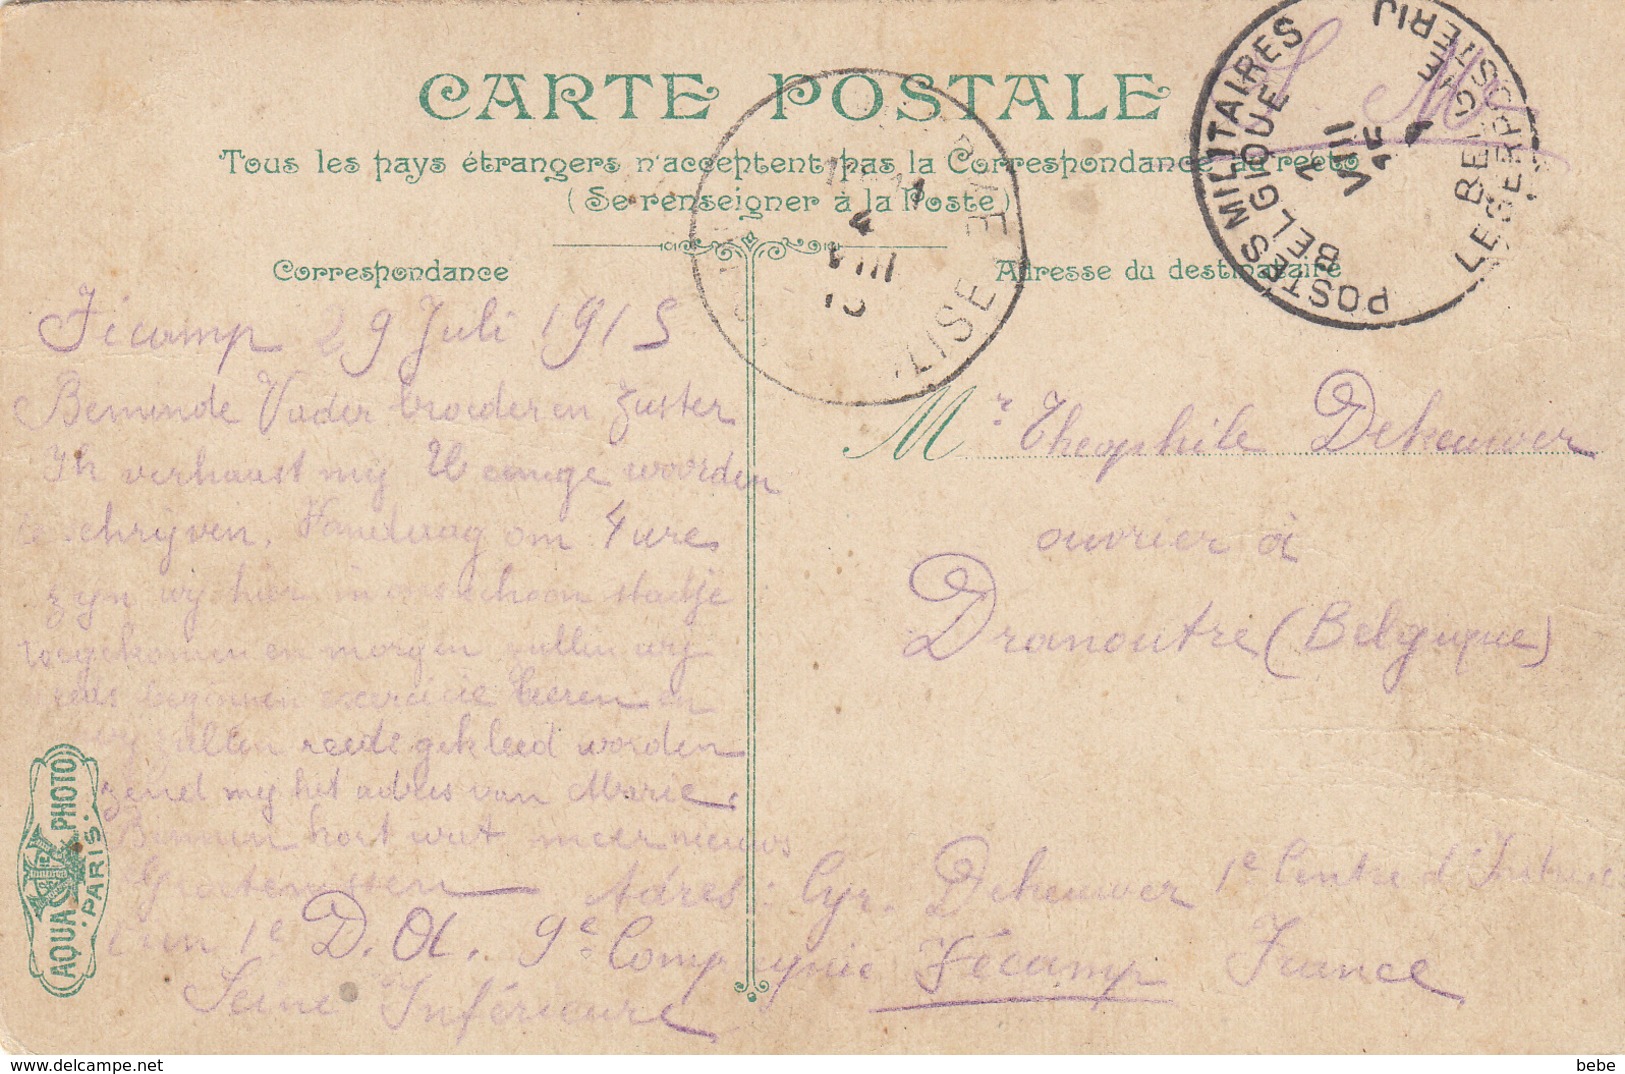 CARTE POSTALE
Tous les pays étrangers n'acceptent pas la Correspondance au recto
(Se renseigner à la Poste)
Correspondance
Adresse du destinataire
S. M.
POSTES MILITAIRES
BELGIQUE
LEGERPOSTERIJ
BELGIE
VIII
15
4
VIII
Fécamp 29 Juli 1915
Beminde Vader broeder en zuster
Ik verhaast mij U eenige woorden
te schrijven. Vandaag om 4 ure
zijn wij hier in ons schoon stadje
toegekomen en morgen zullen wij
beginnen exercicie leeren en
wij zullen reeds gekleed worden
zend mij het adres van Marie.
Binnen kort wat meer nieuws
Groetenissen
Mr Theophile Dekeuwer
ouvrier à
Dranoutre (Belgique)
Adres : Cyr. Dekeuwer 1e Centre d'Instruc
1e D.A. 9e Compagnie Fécamp France
Seine Inférieure
AQUA PHOTO
PARIS.
http://www.delcampe.net
bebe